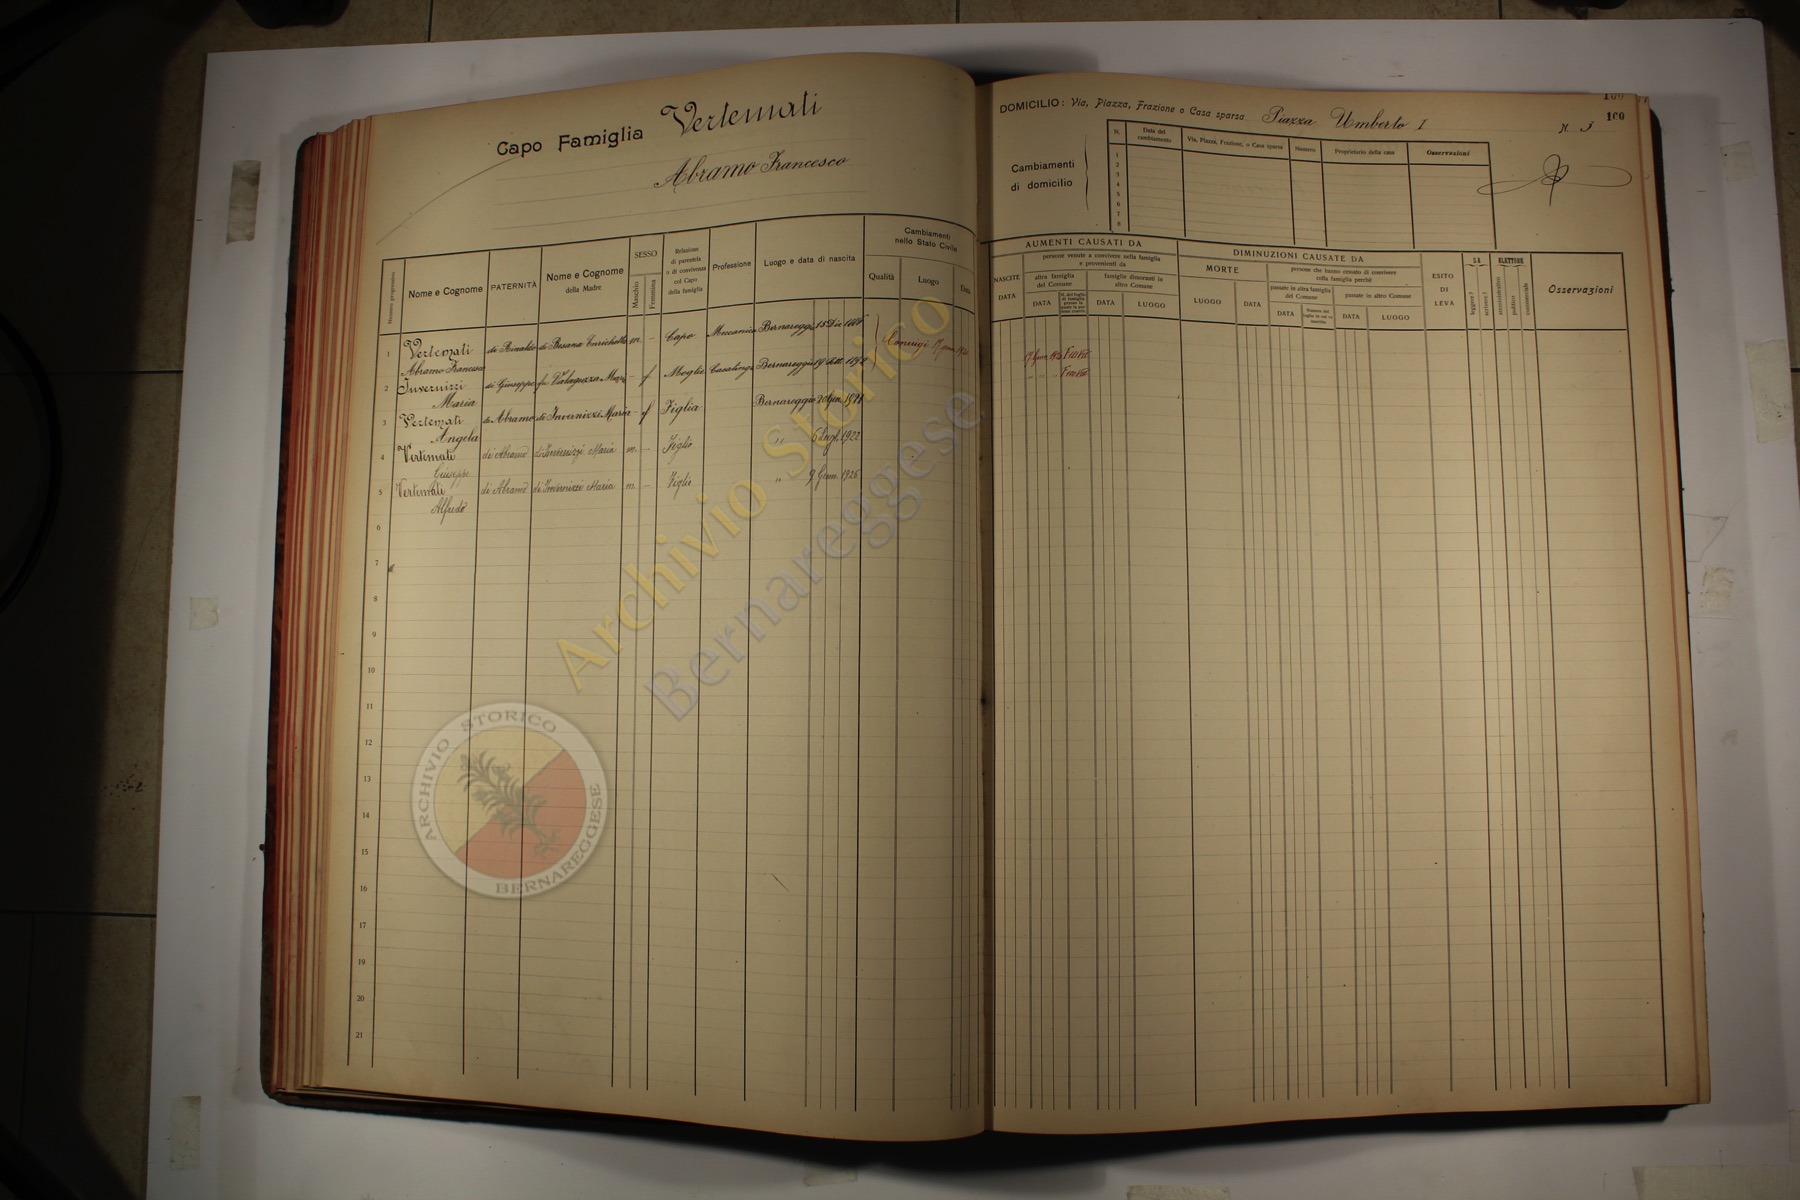 Capo Famiglia Vertemati
Abramo Francesco
DOMICILIO: Via, Piazza, Frazione o Casa sparsa Piazza Umberto I N. 3
160
Cambiamenti
di domicilio
N. Data del cambiamento Via, Piazza, Frazione, o Casa sparsa Numero Proprietario della casa Osservazioni
1
2
3
4
5
6
7
8
Numero progressivo
Nome e Cognome
PATERNITÀ
Nome e Cognome
della Madre
SESSO
Maschio
Femmina
Relazione
di parentela
o di convivenza
col Capo
della famiglia
Professione
Luogo e data di nascita
Cambiamenti
nello Stato Civile
Qualità Luogo Data
AUMENTI CAUSATI DA
NASCITE
DATA
persone venute a convivere nella famiglia
e provenienti da
altra famiglia
del Comune
DATA
famiglie dimoranti in
altro Comune
DATA LUOGO
DIMINUZIONI CAUSATE DA
MORTE
LUOGO DATA
persone che hanno cessato di convivere
colla famiglia perchè
passate in altra famiglia
del Comune
DATA
passate in altro Comune
DATA LUOGO
ESITO
DI
LEVA
SA
leggere?
scrivere?
ELETTORE
amministrativo
politico
commerciale
Osservazioni
1 Vertemati di Rinaldo di Besana Enrichetta m. - Capo Meccanico Bernareggio 15 Dic. Coniugi
Abramo Francesco
2 Invernizzi di Giuseppe fu - f Moglie Casalinga Bernareggio
Maria
3 Vertemati di Abramo di Invernizzi Maria - f Figlia Bernareggio 20 Gen. 1921
Angela
4 Vertemati di Abramo di Invernizzi Maria m. - Figlio " 6 Lugl. 1922
Giuseppe
5 Vertemati di Abramo di Invernizzi Maria m. - Figlio " 9 1926
Alfredo
6
7
8
9
10
11
12
13
14
15
16
17
18
19
20
21
Archivio Storico
Bernareggese
ARCHIVIO STORICO
BERNAREGGESE